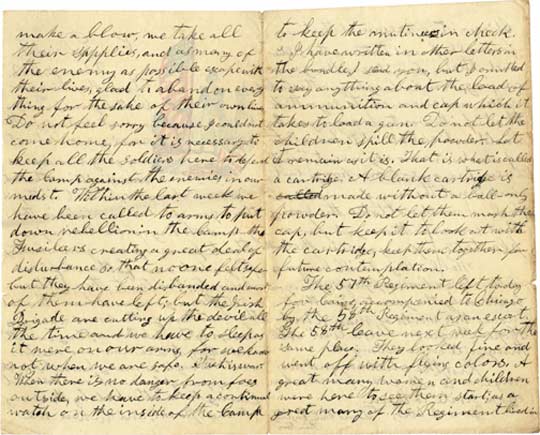 make a blow, we take all
their supplies, and as many of
the enemy as possible escape with
their lives, glad to abandon every
thing for the sake of their own lives
Do not feel sorry because I could not
come home, for it is necessary to
keep all the soldiers here to defend
the Camp against the enemies in our
midst. Within the last week we
have been called to arms to put
down rebellion in the Camp. the
Fusileers creating a great deal of
disturbance so that no one felt safe
but they have been disbanded and most
of them have left, but the Irish
Brigade are cutting up the devil all
the time and we have to sleep as
it were on our arms, for we know
not when we are safe. Such is war.
When there is no danger from foes
outside, we have to keep a continual
watch on the inside of the Camp
to keep the mutineers in check.
I have written in other letters in
the bundle I send you, but I omitted
to say anything about the load of
ammunition and cap which it
takes to load a gun. Do not let the
children spill the powder. Let
it remain as it is. That is what is called
a cartrige. A blank cartrige is
called made without a ball - only
powder. Do not let them mash the
cap, but keep it to look at with
the cartridge, keep them together for
future contemplation.
The 57th Regiment left today
for being accompanied to Chicago
by the Regiment as an escort.
The 58th leave next week for the
same place. They looked fine and
went off with flying colors. A
great many women and children
were here to see them start, as a
great many of the Regiment lived in